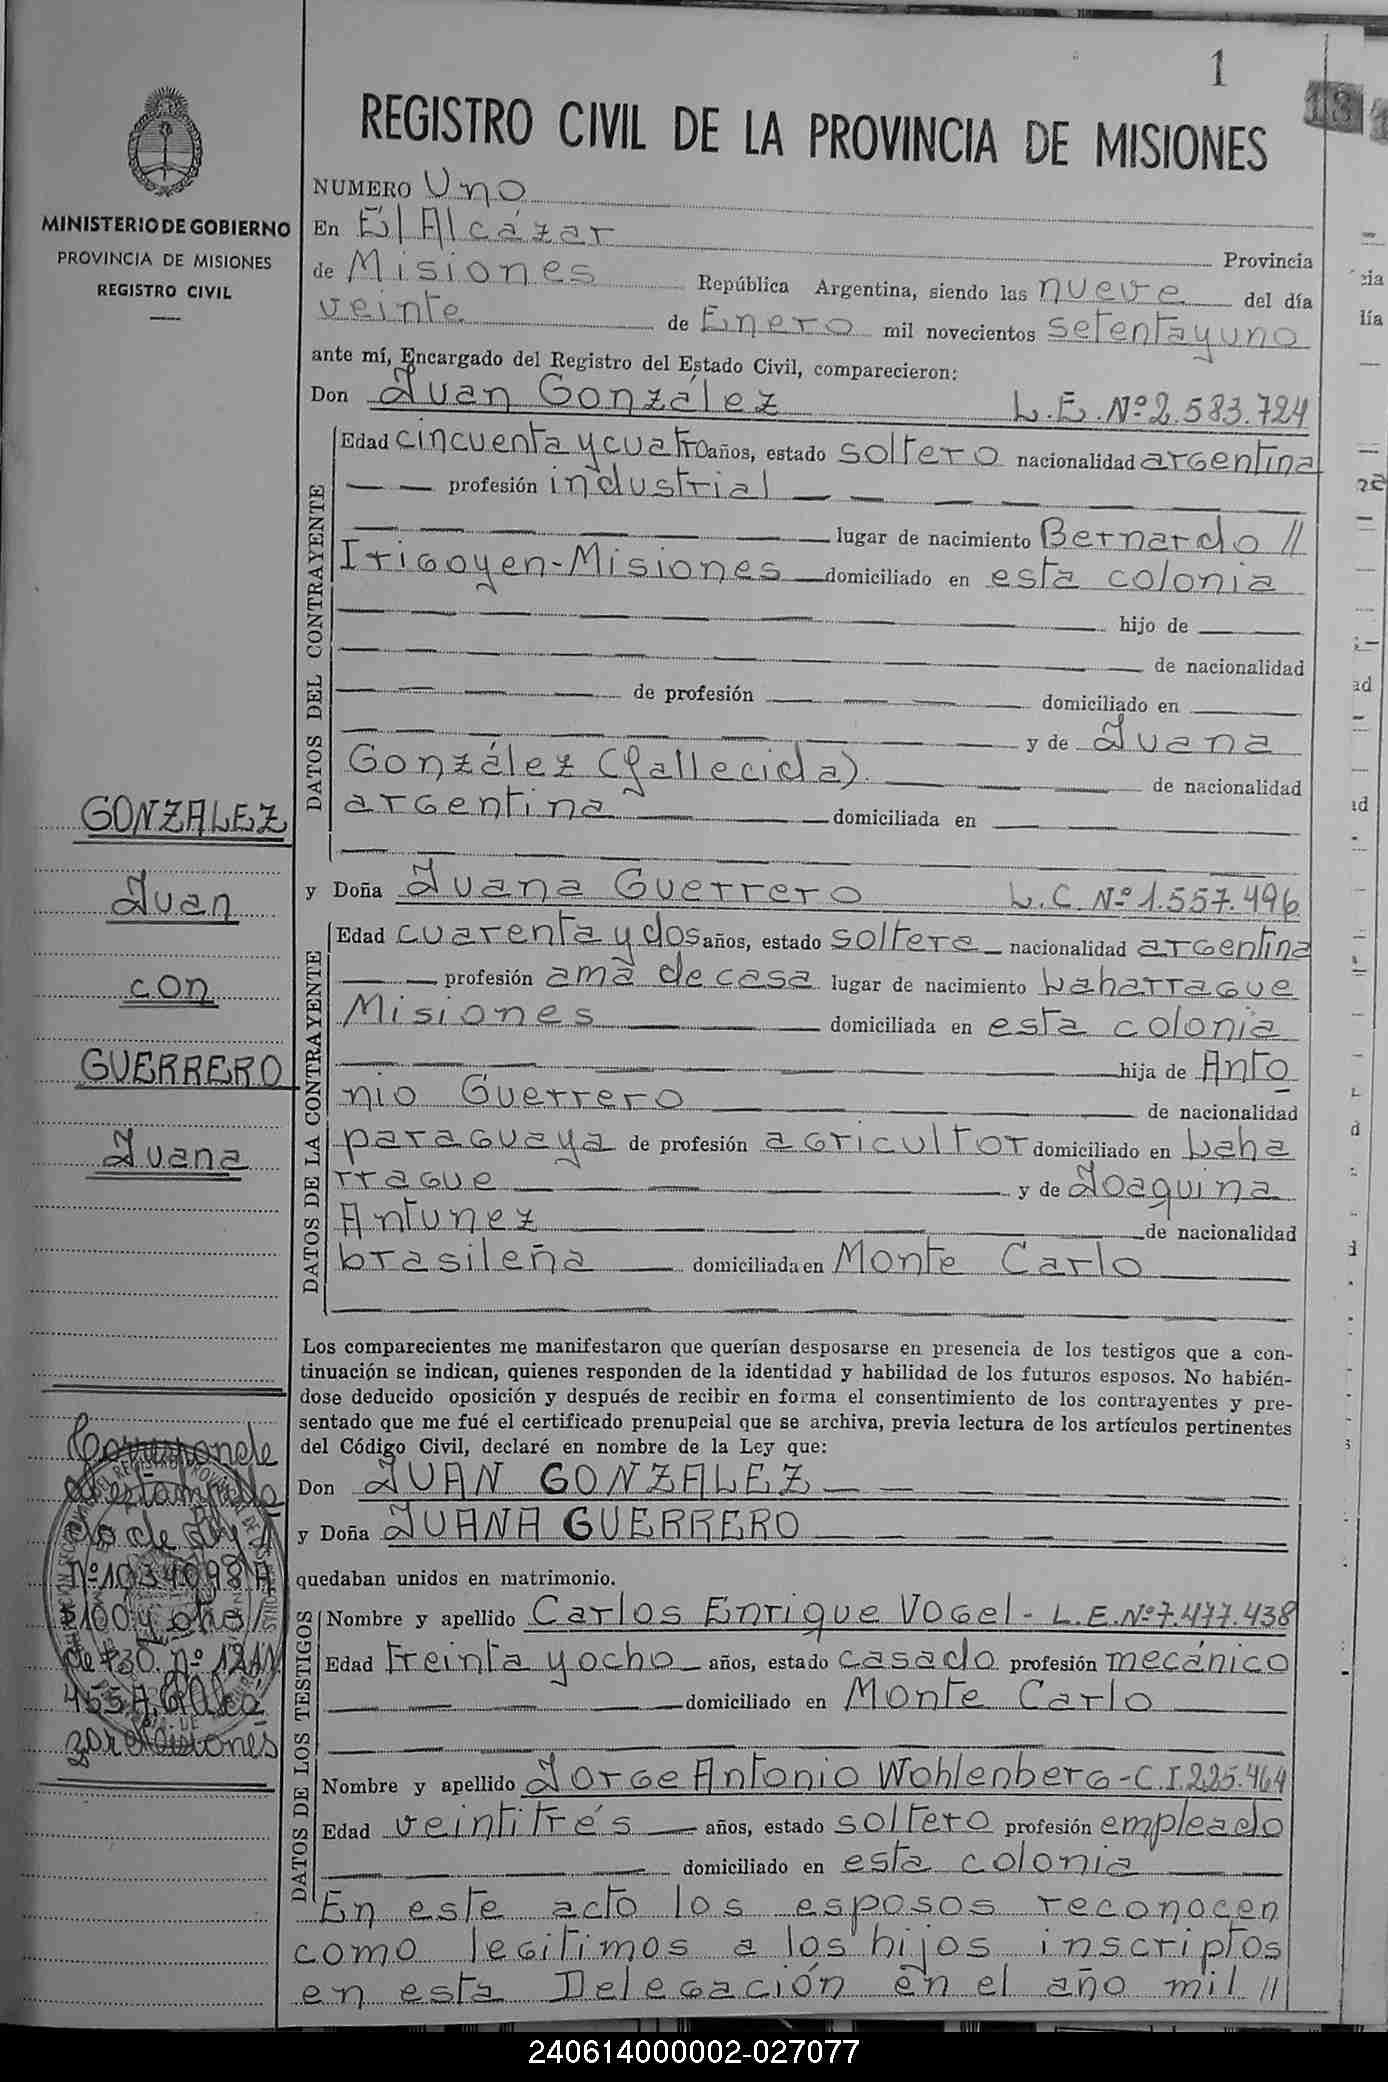 1
REGISTRO CIVIL DE LA PROVINCIA DE MISIONES
MINISTERIO DE GOBIERNO
PROVINCIA DE MISIONES
REGISTRO CIVIL
NUMERO Uno
En El Alcázar Provincia
de Misiones República Argentina, siendo las nueve del día
veinte de Enero mil novecientos setenta y uno
ante mí, Encargado del Registro del Estado Civil, comparecieron:
Don Juan González L.E. Nº 2.583.724
DATOS DEL CONTRAYENTE
Edad cincuenta y cuatro años, estado soltero nacionalidad argentina
— — profesión industrial — — — —
lugar de nacimiento Bernardo //
Irigoyen-Misiones — domiciliado en esta colonia
hijo de
de nacionalidad
de profesión domiciliado en
y de Juana
González (fallecida). de nacionalidad
argentina domiciliada en
y Doña Juana Guerrero L.C. Nº 1.557.496
DATOS DE LA CONTRAYENTE
Edad cuarenta y dos años, estado soltera nacionalidad argentina
— — profesión ama de casa lugar de nacimiento Laharrague
Misiones domiciliada en esta colonia
hija de Anto
nio Guerrero de nacionalidad
paraguaya de profesión agricultor domiciliado en Laha
rrague y de Joaquina
Antunez de nacionalidad
brasileña domiciliada en Monte Carlo
GONZALEZ
Juan
con
GUERRERO
Juana
Los comparecientes me manifestaron que querían desposarse en presencia de los testigos que a con-
tinuación se indican, quienes responden de la identidad y habilidad de los futuros esposos. No habién-
dose deducido oposición y después de recibir en forma el consentimiento de los contrayentes y pre-
sentado que me fué el certificado prenupcial que se archiva, previa lectura de los artículos pertinentes
del Código Civil, declaré en nombre de la Ley que:
Don JUAN GONZALEZ
y Doña JUANA GUERRERO
quedaban unidos en matrimonio.
DATOS DE LOS TESTIGOS
Nombre y apellido Carlos Enrique Vogel - L.E. Nº 7.477.438
Edad treinta y ocho años, estado casado profesión mecánico
domiciliado en Monte Carlo
Nombre y apellido Jorge Antonio Wohlenberg - C.I. 225.464
Edad veintitrés años, estado soltero profesión empleado
domiciliado en esta colonia
En este acto los esposos reconocen
como legitimos a los hijos inscriptos
en esta Delegación en el año mil //
Corresponde
al estampilla
do de
Nº 1034098 A
$100 y otro
de $30 nº
Misiones
240614000002-027077